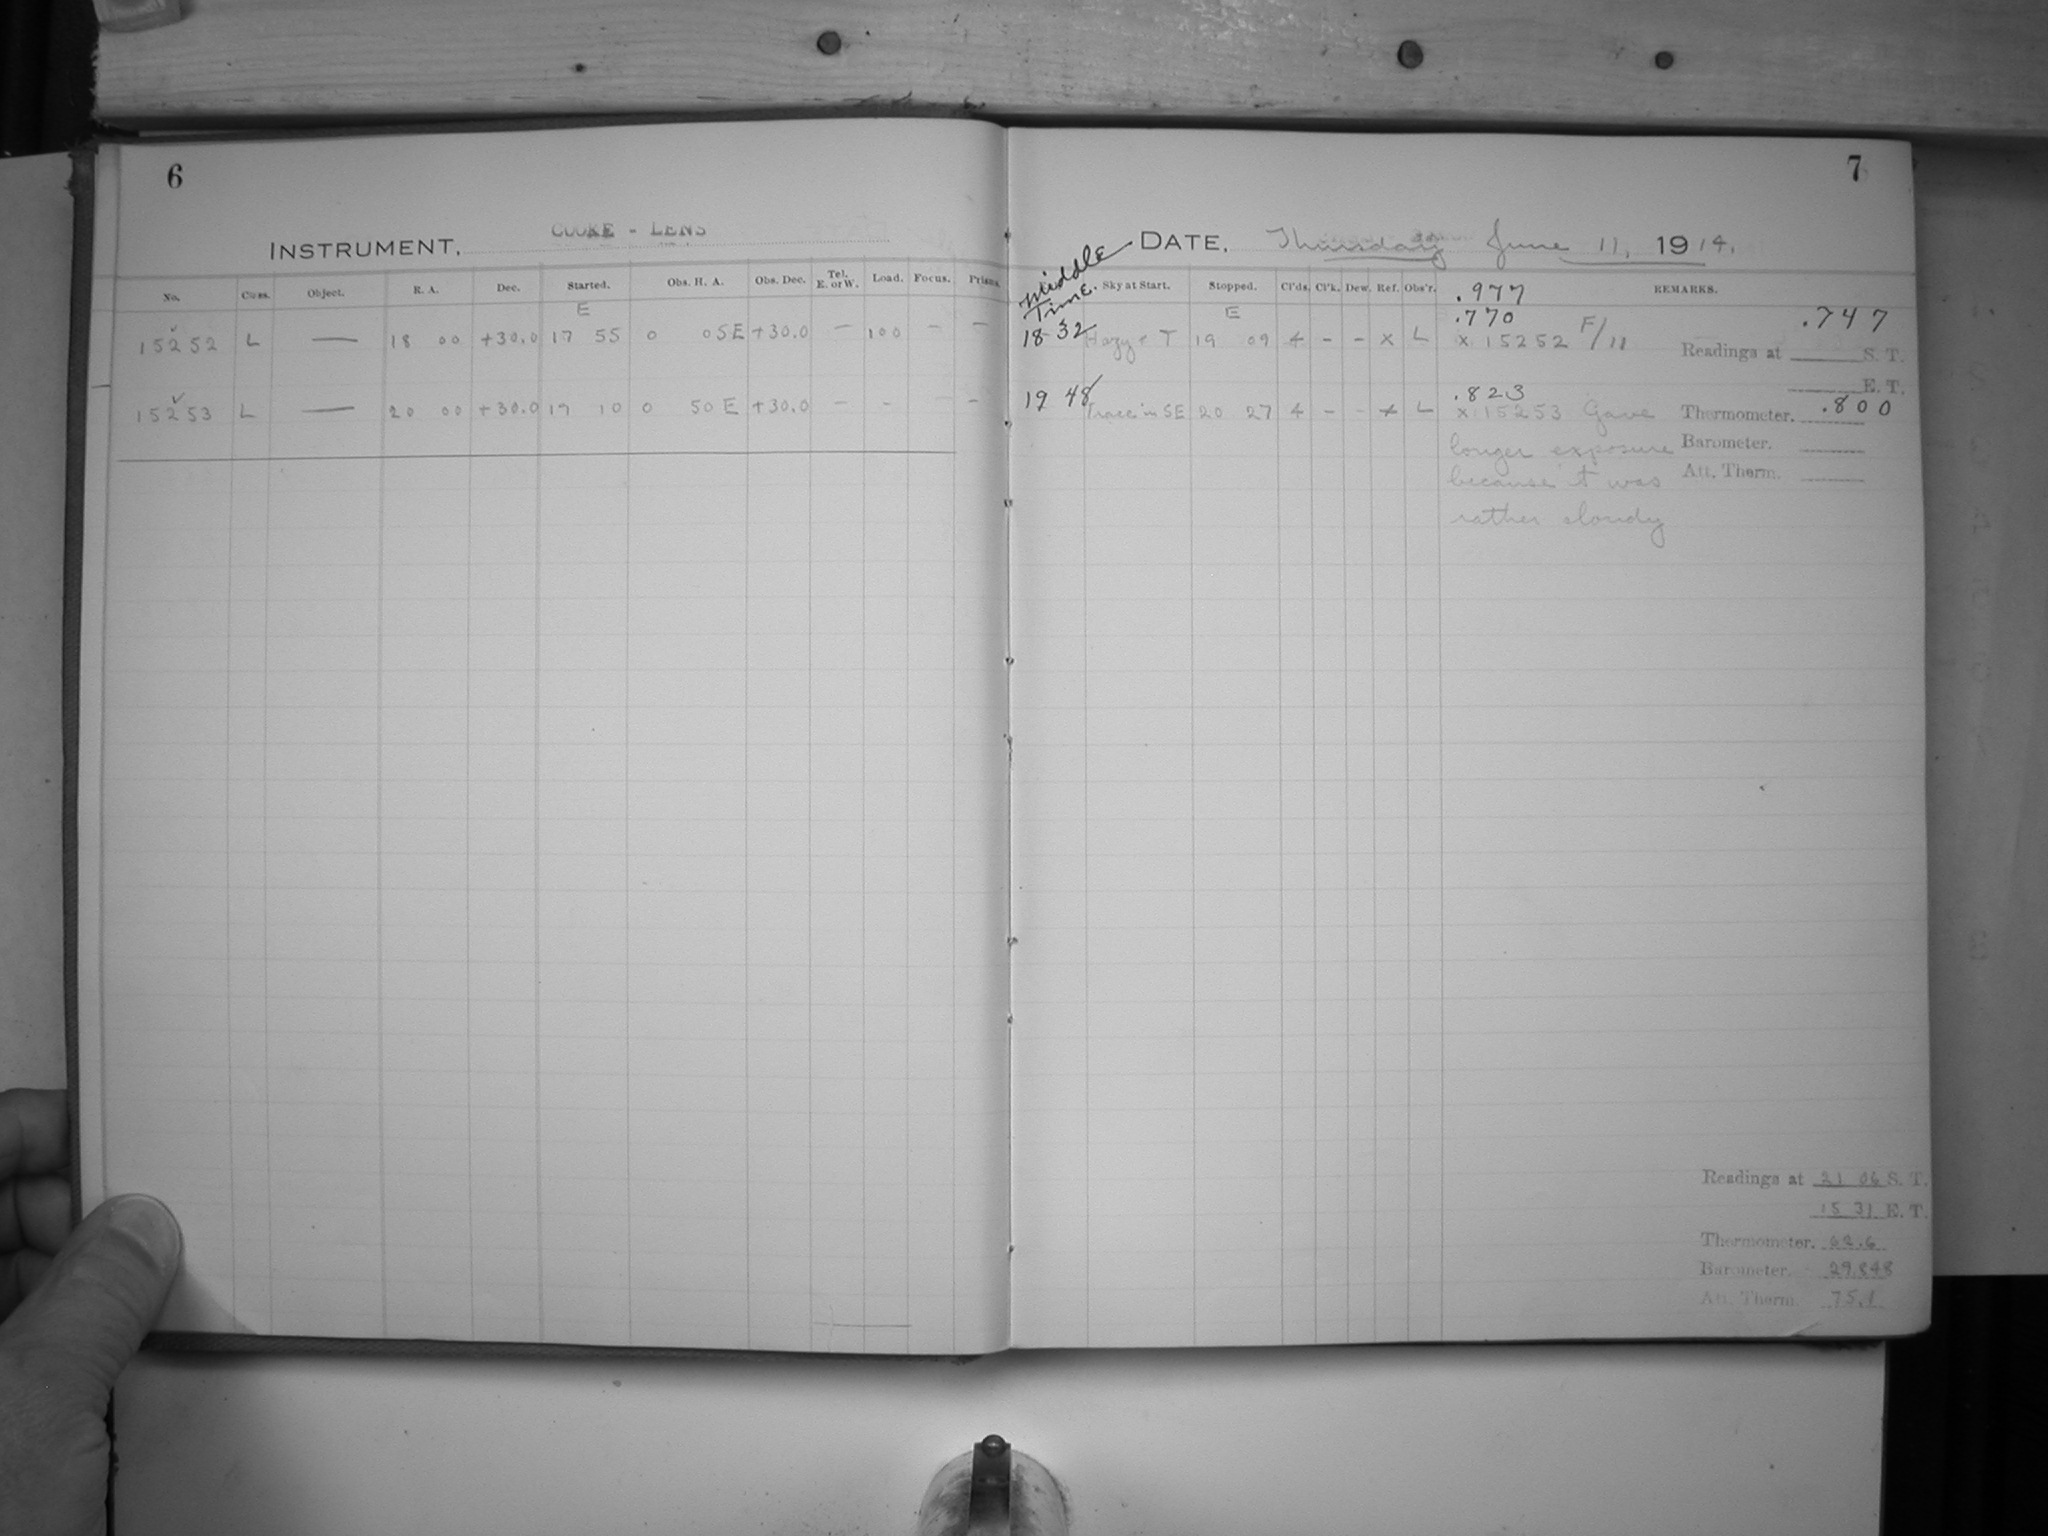 6
INSTRUMENT, COOKE - LENS
No. Class. Object. R. A. Dec. Started. Obs. H. A. Obs. Dec. Tel. E. or W. Load. Focus. Prisms.
E
15252 L — 18 00 +30.0 17 55 0 05E +30.0 — 100 — —
15253 L — 20 00 +30.0 19 10 0 50 E +30.0 — — — —
7
DATE, Thursday June 11, 1914.
Middle Time. Sky at Start. Stopped. Cl'ds. Cl'k. Dew. Ref. Obs'r. REMARKS.
.977
E .770 .747
18 32 Hazy + T 19 09 4 - - x L x 15252 F/11
Readings at S. T.
E. T.
.823
19 48 Trace in SE 20 27 4 - - x L x 15253 Gave
Thermometer. .800
longer exposure
Barometer.
because it was
Att. Therm.
rather cloudy
Readings at 21 06 S. T.
15 31 E. T.
Thermometer. 62.6
Barometer. 29.848
Att. Therm. 75.1